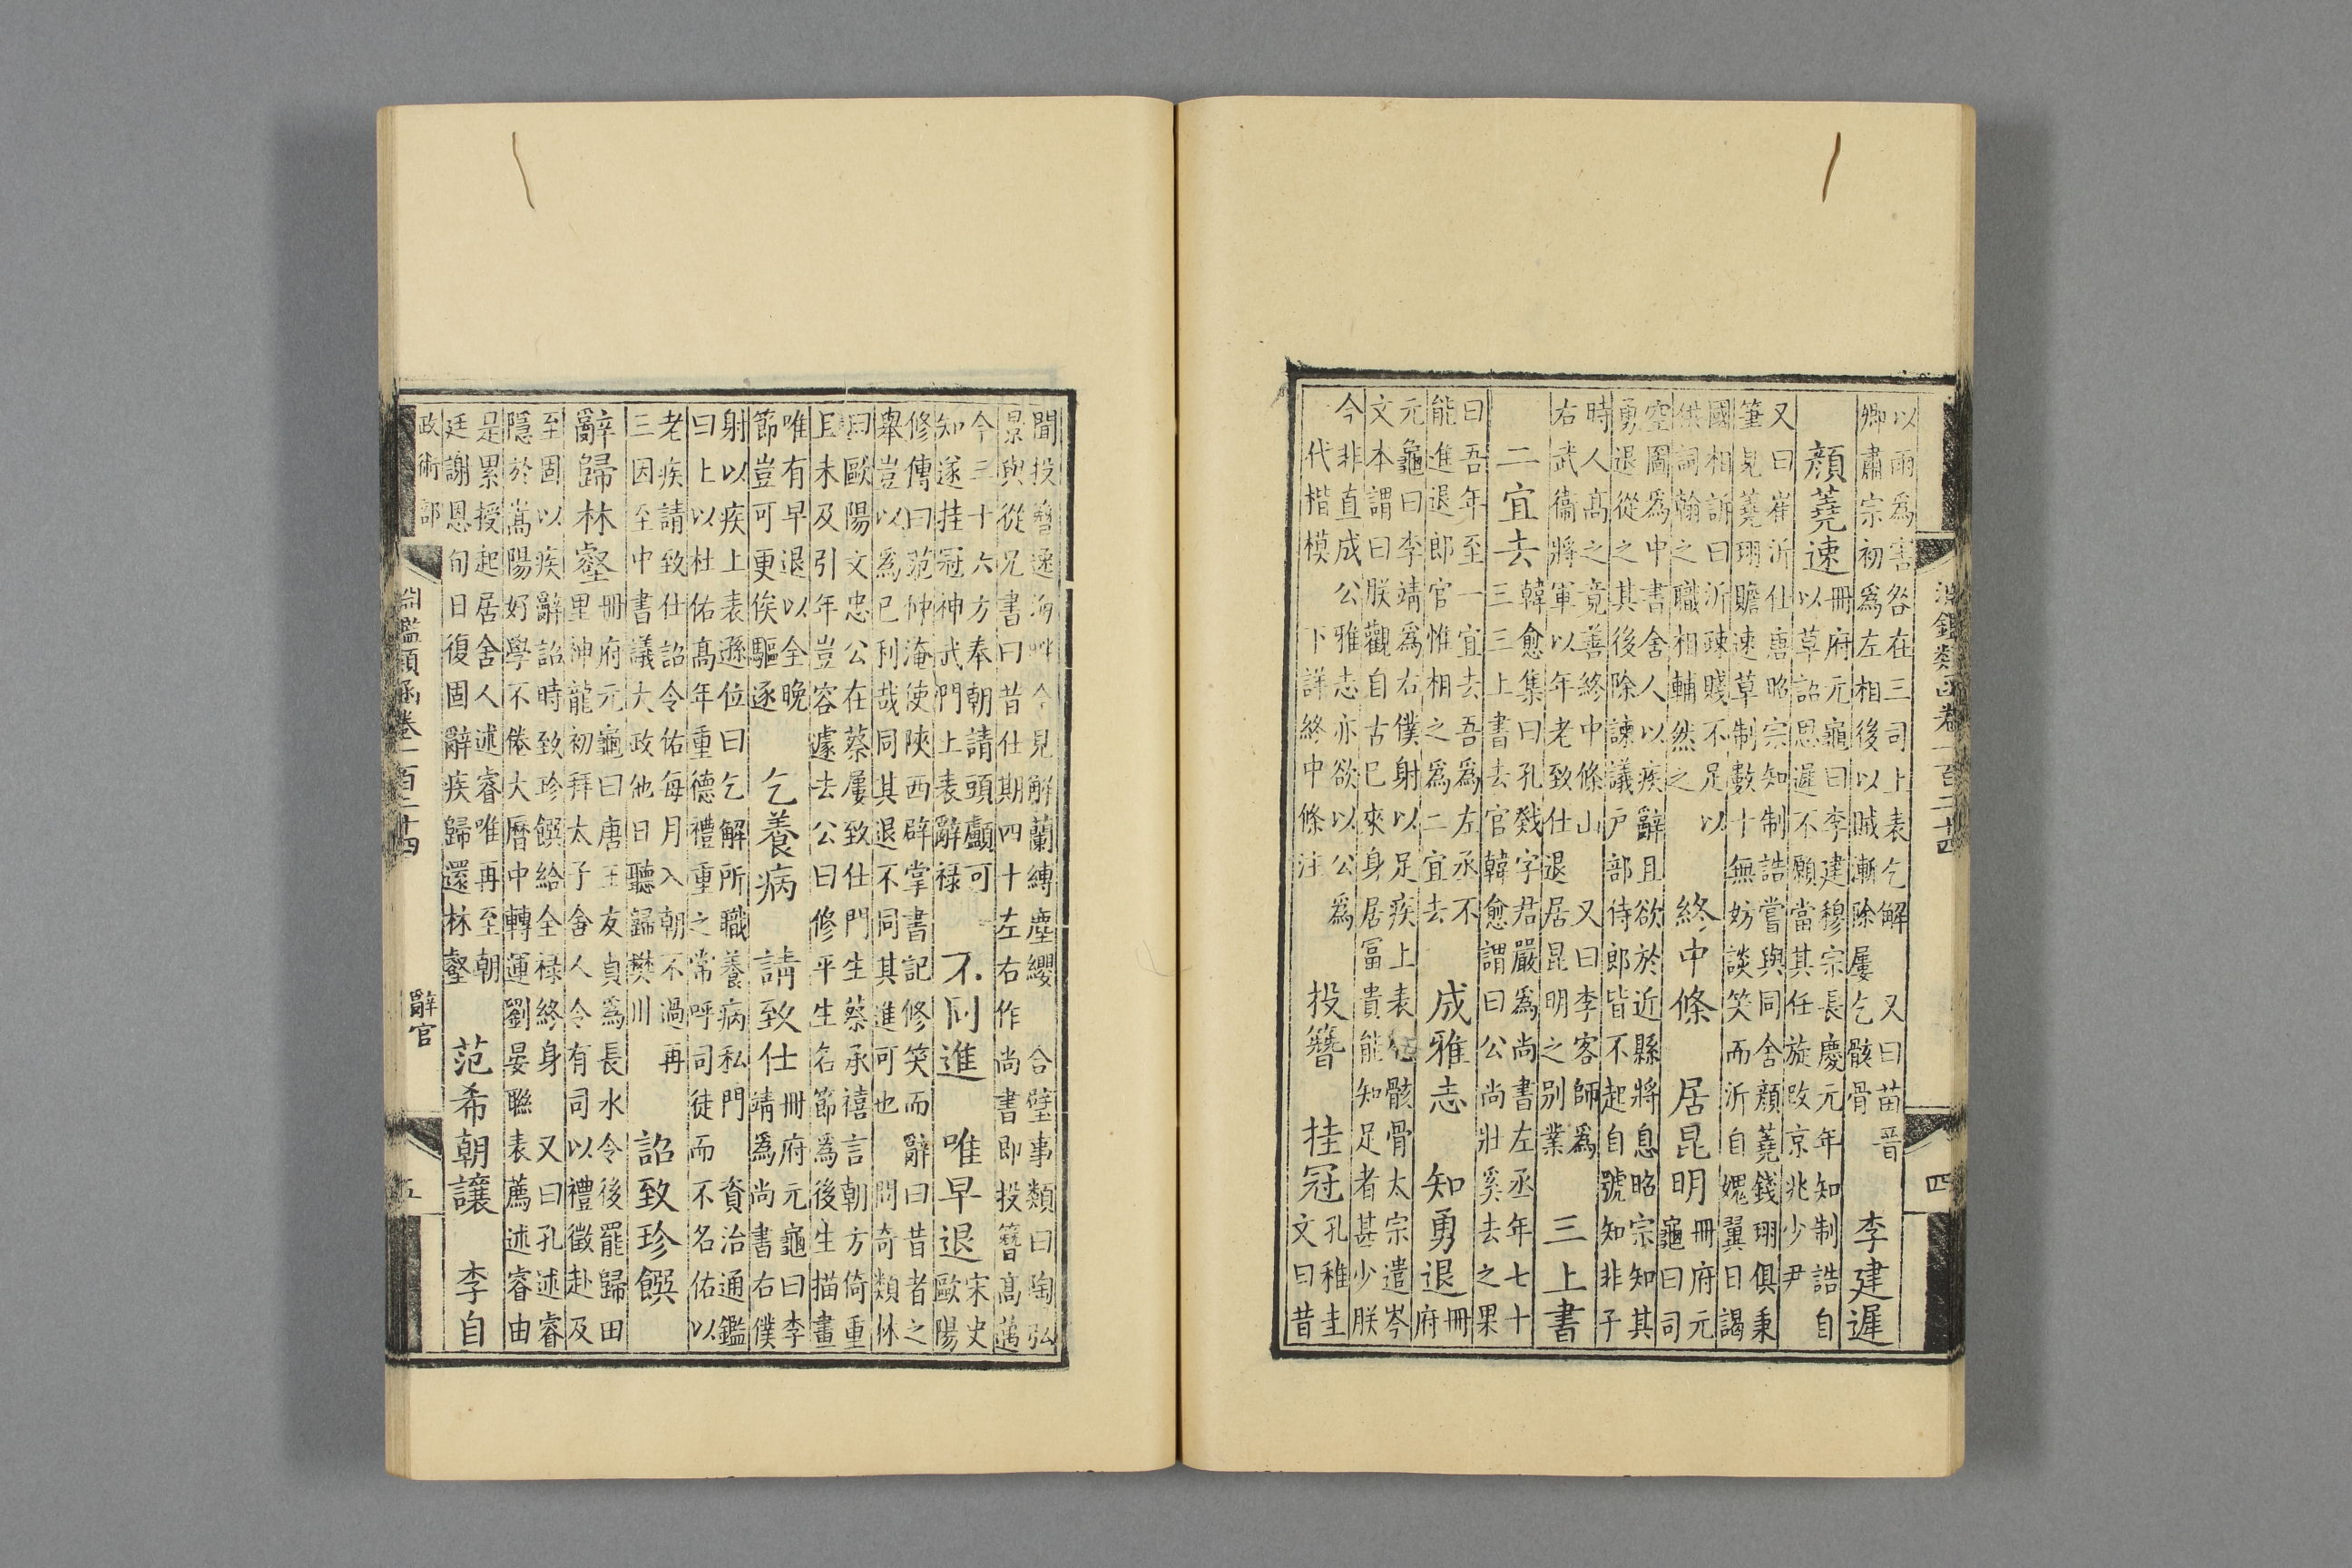 淵鑑類函卷一百二十四 四
以雨爲害咎在三司上表乞解 又曰苗晉
卿肅宗初爲左相後以賊漸除屢乞骸骨
李建遲
顏蕘速
冊府元龜曰李建穆宗長慶元年知制誥自
以草詔思遲不願當其任旋改京兆少尹
又曰崔沂仕唐昭宗知制誥嘗與同舍顏蕘錢珝俱秉
筆見蕘珝贍速草制數十無妨談笑而沂自媿翼日謁
國相訴曰沂疎賤不足以
供詞翰之職相輔然之
終中條 居昆明
冊府元
龜曰司
空圖爲中書舍人以疾辭且欲於近縣將息昭宗知其
勇退從之其後除諫議戶部侍郎皆不起自號知非子
時人高之竟善終中條山 又曰李客師爲
右武衞將軍以年老致仕退居昆明之別業
三上書
二宜去
韓愈集曰孔戣字君嚴爲尚書左丞年七十
三三上書去官韓愈謂曰公尚壯奚去之果
曰吾年至一宜去吾爲左丞不
能進退郎官惟相之爲二宜去
成雅志 知勇退
冊
府
元龜曰李靖爲右僕射以足疾上表乞骸骨太宗遣岑
文本謂曰朕觀自古已來身居富貴能知足者甚少朕
今非直成公雅志亦欲以公爲
代楷模 下詳終中條注
投簪 挂冠
孔稚圭
文曰昔
聞投簪逸海岸今見解蘭縛塵纓 合璧事類曰陶弘
景與從兄書曰昔仕期四十左右作尚書即投簪高邁
今三十六方奉朝請頭顱可
知遂挂冠神武門上表辭祿
不同進 唯早退
宋史
歐陽
修傳曰范仲淹使陝西辟掌書記修笑而辭曰昔者之
舉豈以爲己利哉同其退不同其進可也 問奇類林
曰歐陽文忠公在蔡屢致仕門生蔡承禧言朝方倚重
且未及引年豈容遽去公曰修平生名節爲後生描畫
唯有早退以全晚
節豈可更俟驅逐
乞養病 請致仕
冊府元龜曰李
靖爲尚書右僕
射以疾上表遜位曰乞解所職養病私門 資治通鑑
曰上以杜佑高年重德禮重之常呼司徒而不名佑以
老疾請致仕詔令佑每月入朝不過再
三因至中書議大政他日聽歸樊川
詔致珍饌
辭歸林壑
冊府元龜曰唐王友貞爲長水令後罷歸田
里神龍初拜太子舍人令有司以禮徵赴及
至固以疾辭詔時致珍饌給全祿終身 又曰孔述睿
隱於嵩陽好學不倦大曆中轉運劉晏聯表薦述睿由
是累授起居舍人述睿唯再至朝
廷謝恩旬日復固辭疾歸還林壑
范希朝讓 李自
政術部 淵鑑類函卷一百二十四 辭官 五